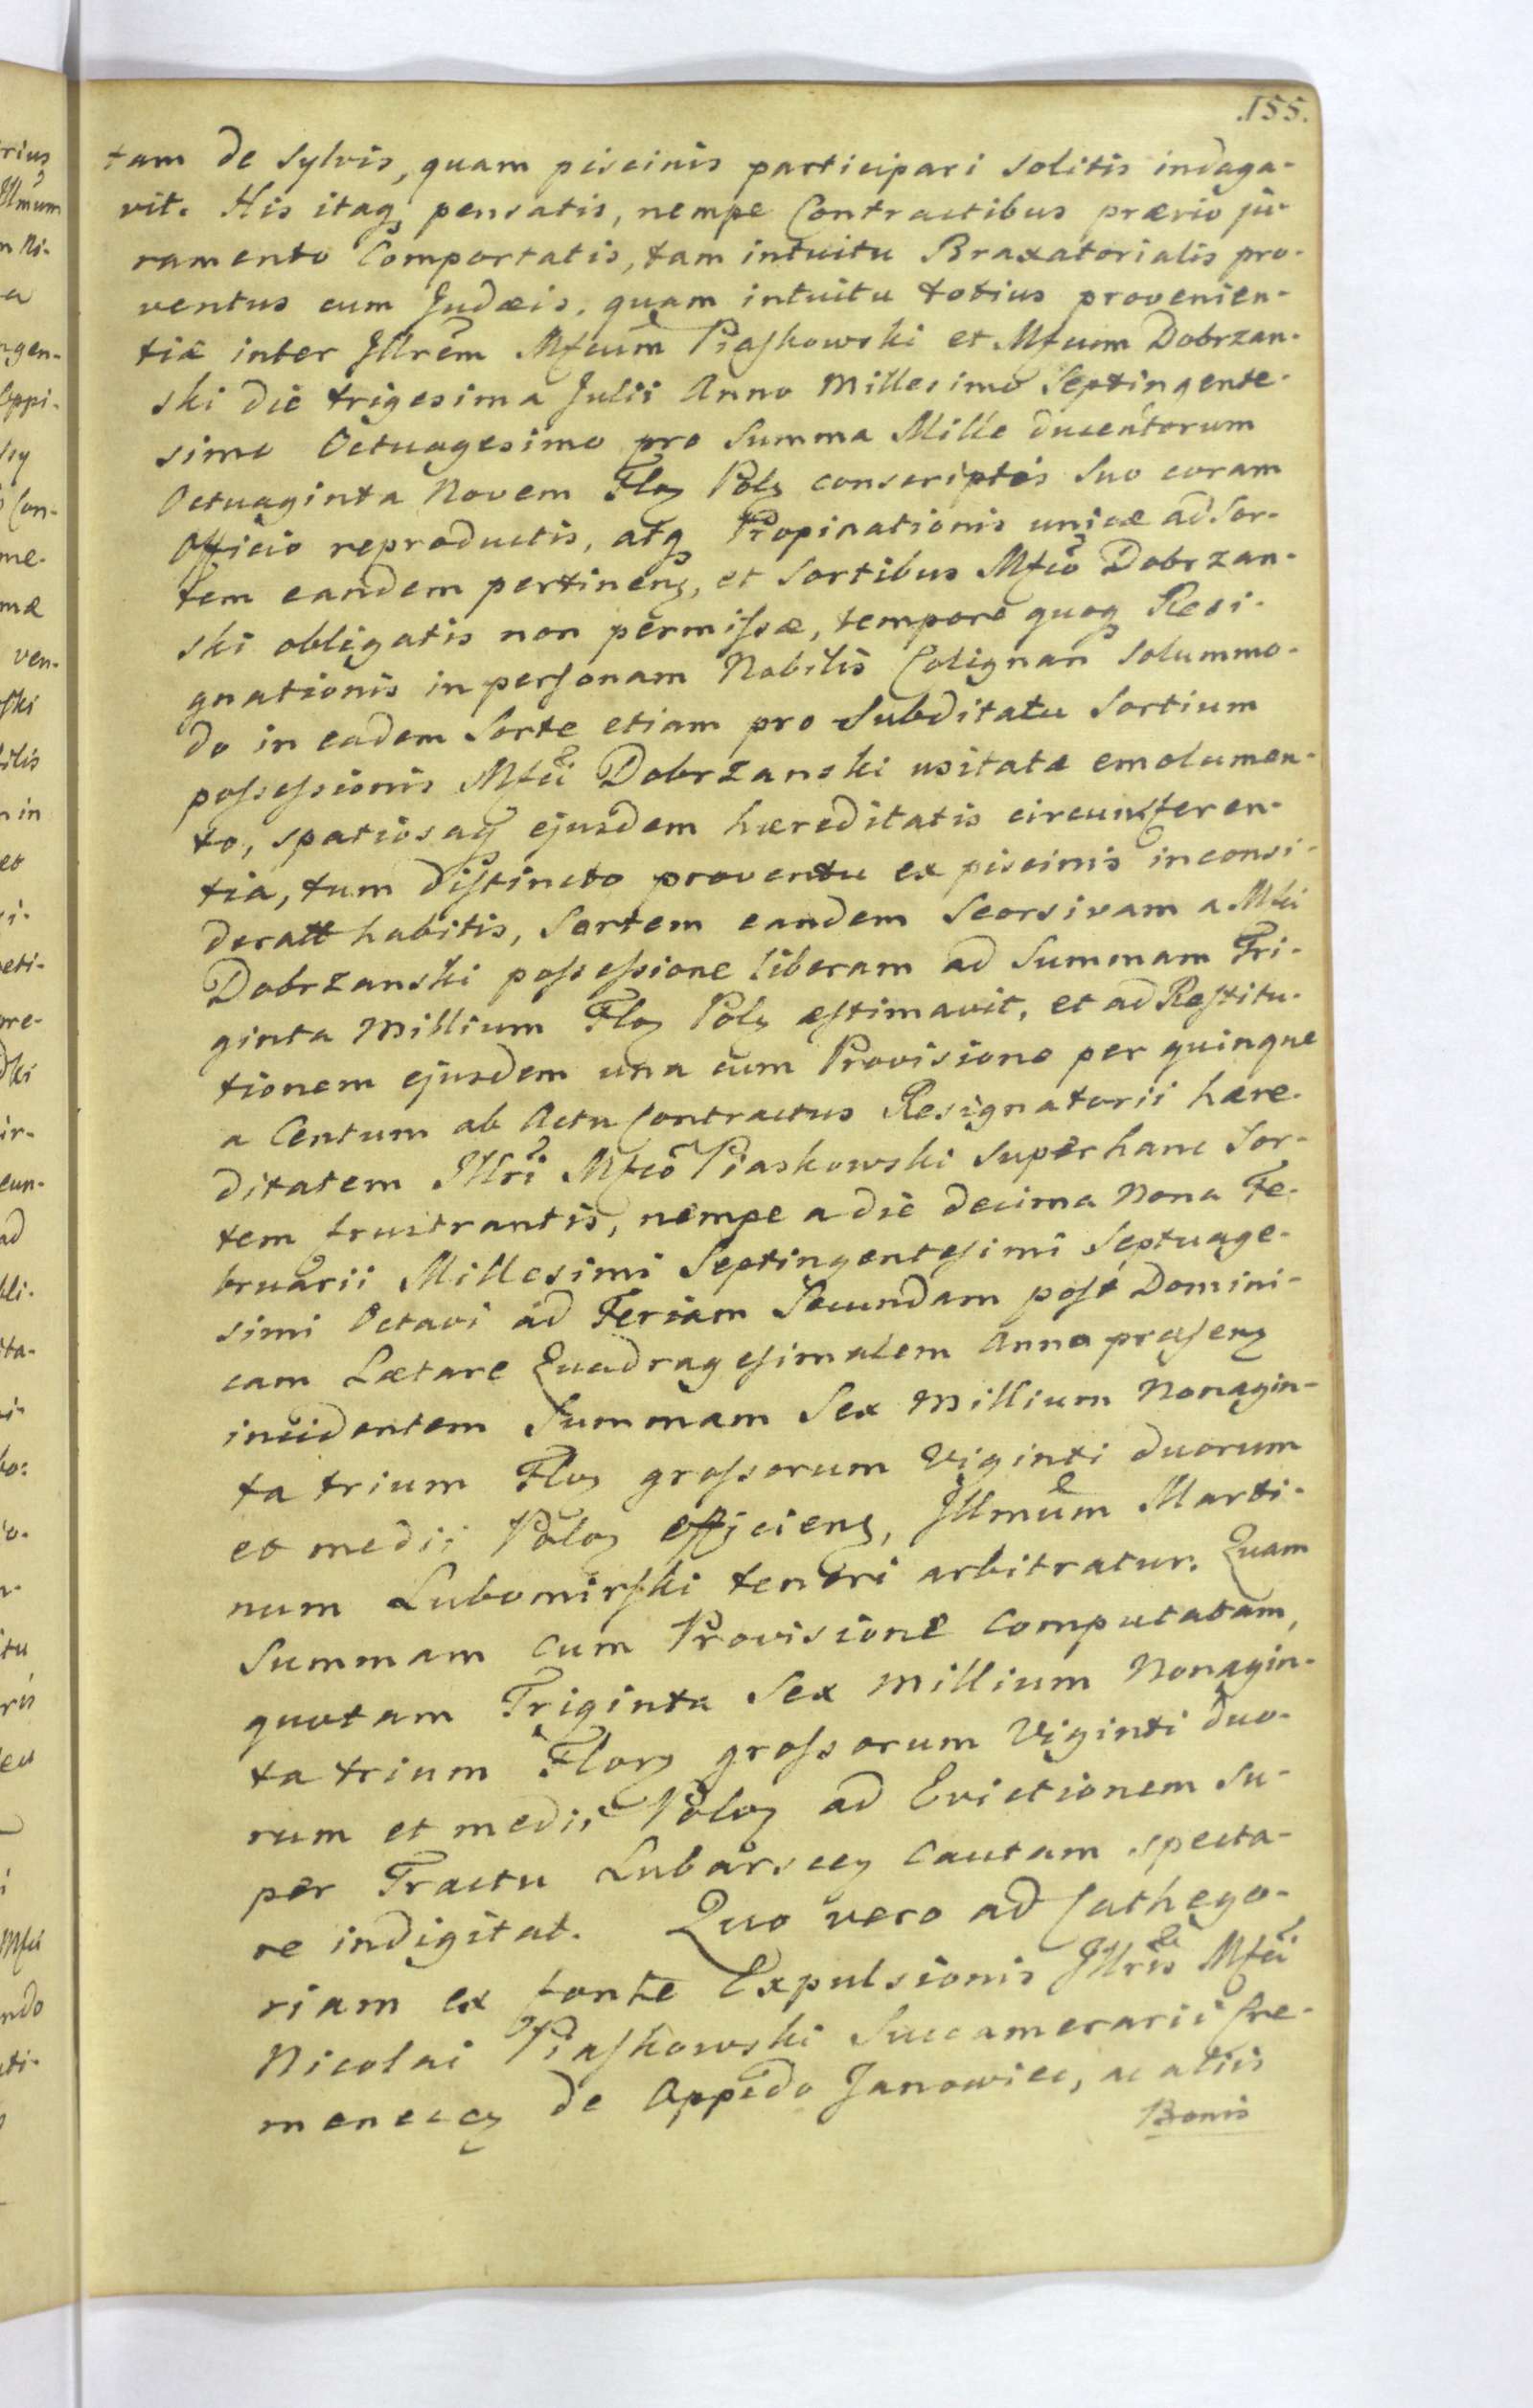 .155.
tam de Sylvis, quam piscinis participari solitis indaga-
vit. His itaq pensatis, nempe Contractibus prævio ju-
ramento Comportatis, tam intuitu Braxatorialis pro-
ventus cum Judæis, quam intuitu totius provenien-
tiæ inter Jllrem Mfcum Piaskowski et Mfcum Dobrzan-
ski die trigesima Julii Anno Millesimo Septingente-
simo Octuagesimo pro Summa Mille ducentorum
Octuaginta Novem Floz Polz conscriptis suo coram
Officio reproductis, atq Propinationis unicæ ad Sor-
tem eandem pertinenz, et Sortibus Mfco Dobrzan-
ski obligatis non permissæ, tempore quoq Resi-
gnationis in personam Nobilis Colignan solummo-
do in eadem Sorte etiam pro Subditatu Sortium
possessionis Mfci Dobrzanski usitatæ emolumen-
to, spatiosaq ejusdem hæreditatis circumferen-
tia, tum distincto proventu ex piscinis in consi-
deratt habitis, Sortem eandem Seorsivam a Mfci
Dobrzanski possessione liberam ad Summam Tri-
ginta Millium Floz Polz æstimavit, et ad Restitu-
tionem ejusdem una cum Provisione per quinque
a Centum ab Actu Contractus Resignatorii hære-
ditatem Jllri Mfco Piaskowski super hanc Sor-
tem frustrantis, nempe a die decima Nona Fe-
bruarii Millesimi Septingentesimi Septuage-
simi Octavi ad Feriam Secundam post Domini-
cam Lætare Quadragesimalem Anno præsenz
incidentem Summam Sex Millium Nonagin-
ta trium Floz grossorum Viginti duorum
et medii Poloz efficienz, Jllmum Marti-
num Lubomirski teneri arbitratur. Quam
Summam cum Provisione computatam,
quotam Triginta Sex Millium Nonagin-
ta trium Florz grossorum Viginti duo-
rum et medii Poloz ad Evictionem su-
per Tractu Lubarscez cautam specta-
re indigitat. Quo vero ad Cathego-
riam ex fonte Expulsionis Jllris Mfci
Nicolai Piaskowski Succamerarii Cre-
menecez de Oppido Janowiec, ac aliis
Bonis